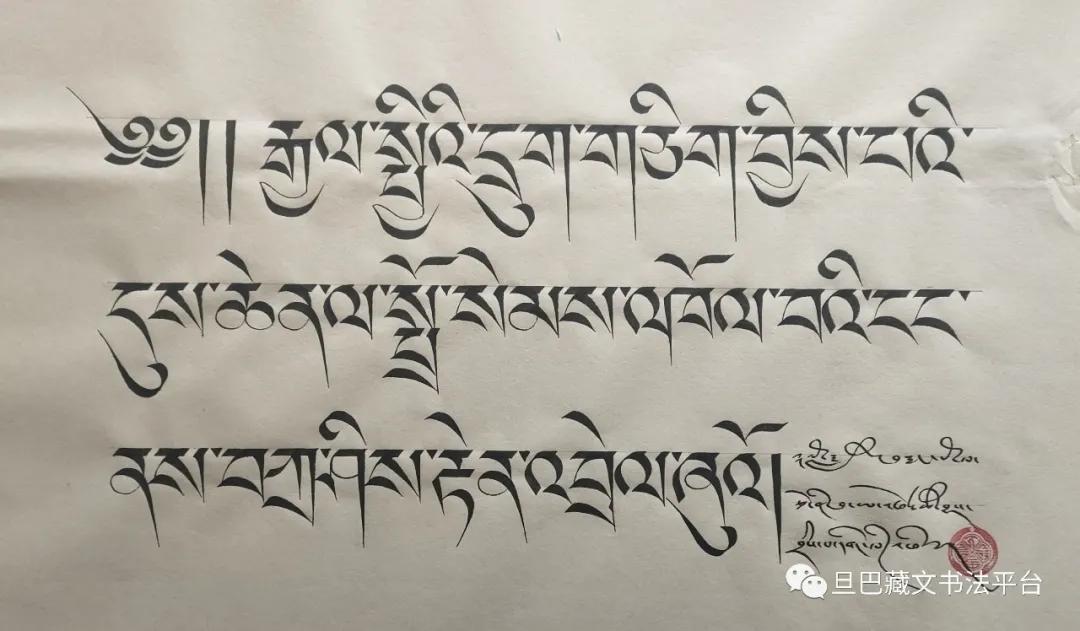 ༄༅།། རྒྱལ་སྤྱིའི་དྲུག་གཅིག་བྱིས་པའི་
དུས་ཆེན་ལ་སྤྲོ་སེམས་འཁོལ་བའི་ངང་
ནས་བཀྲ་ཤིས་རྟེན་འབྲེལ་ཞུའོ།
旦巴藏文书法平台